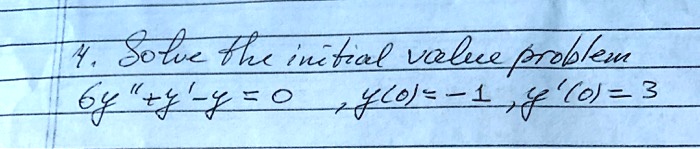 4. Solve the initial value problem
6y"+y'-y=0 , y(0)=-1, y'(0)=3